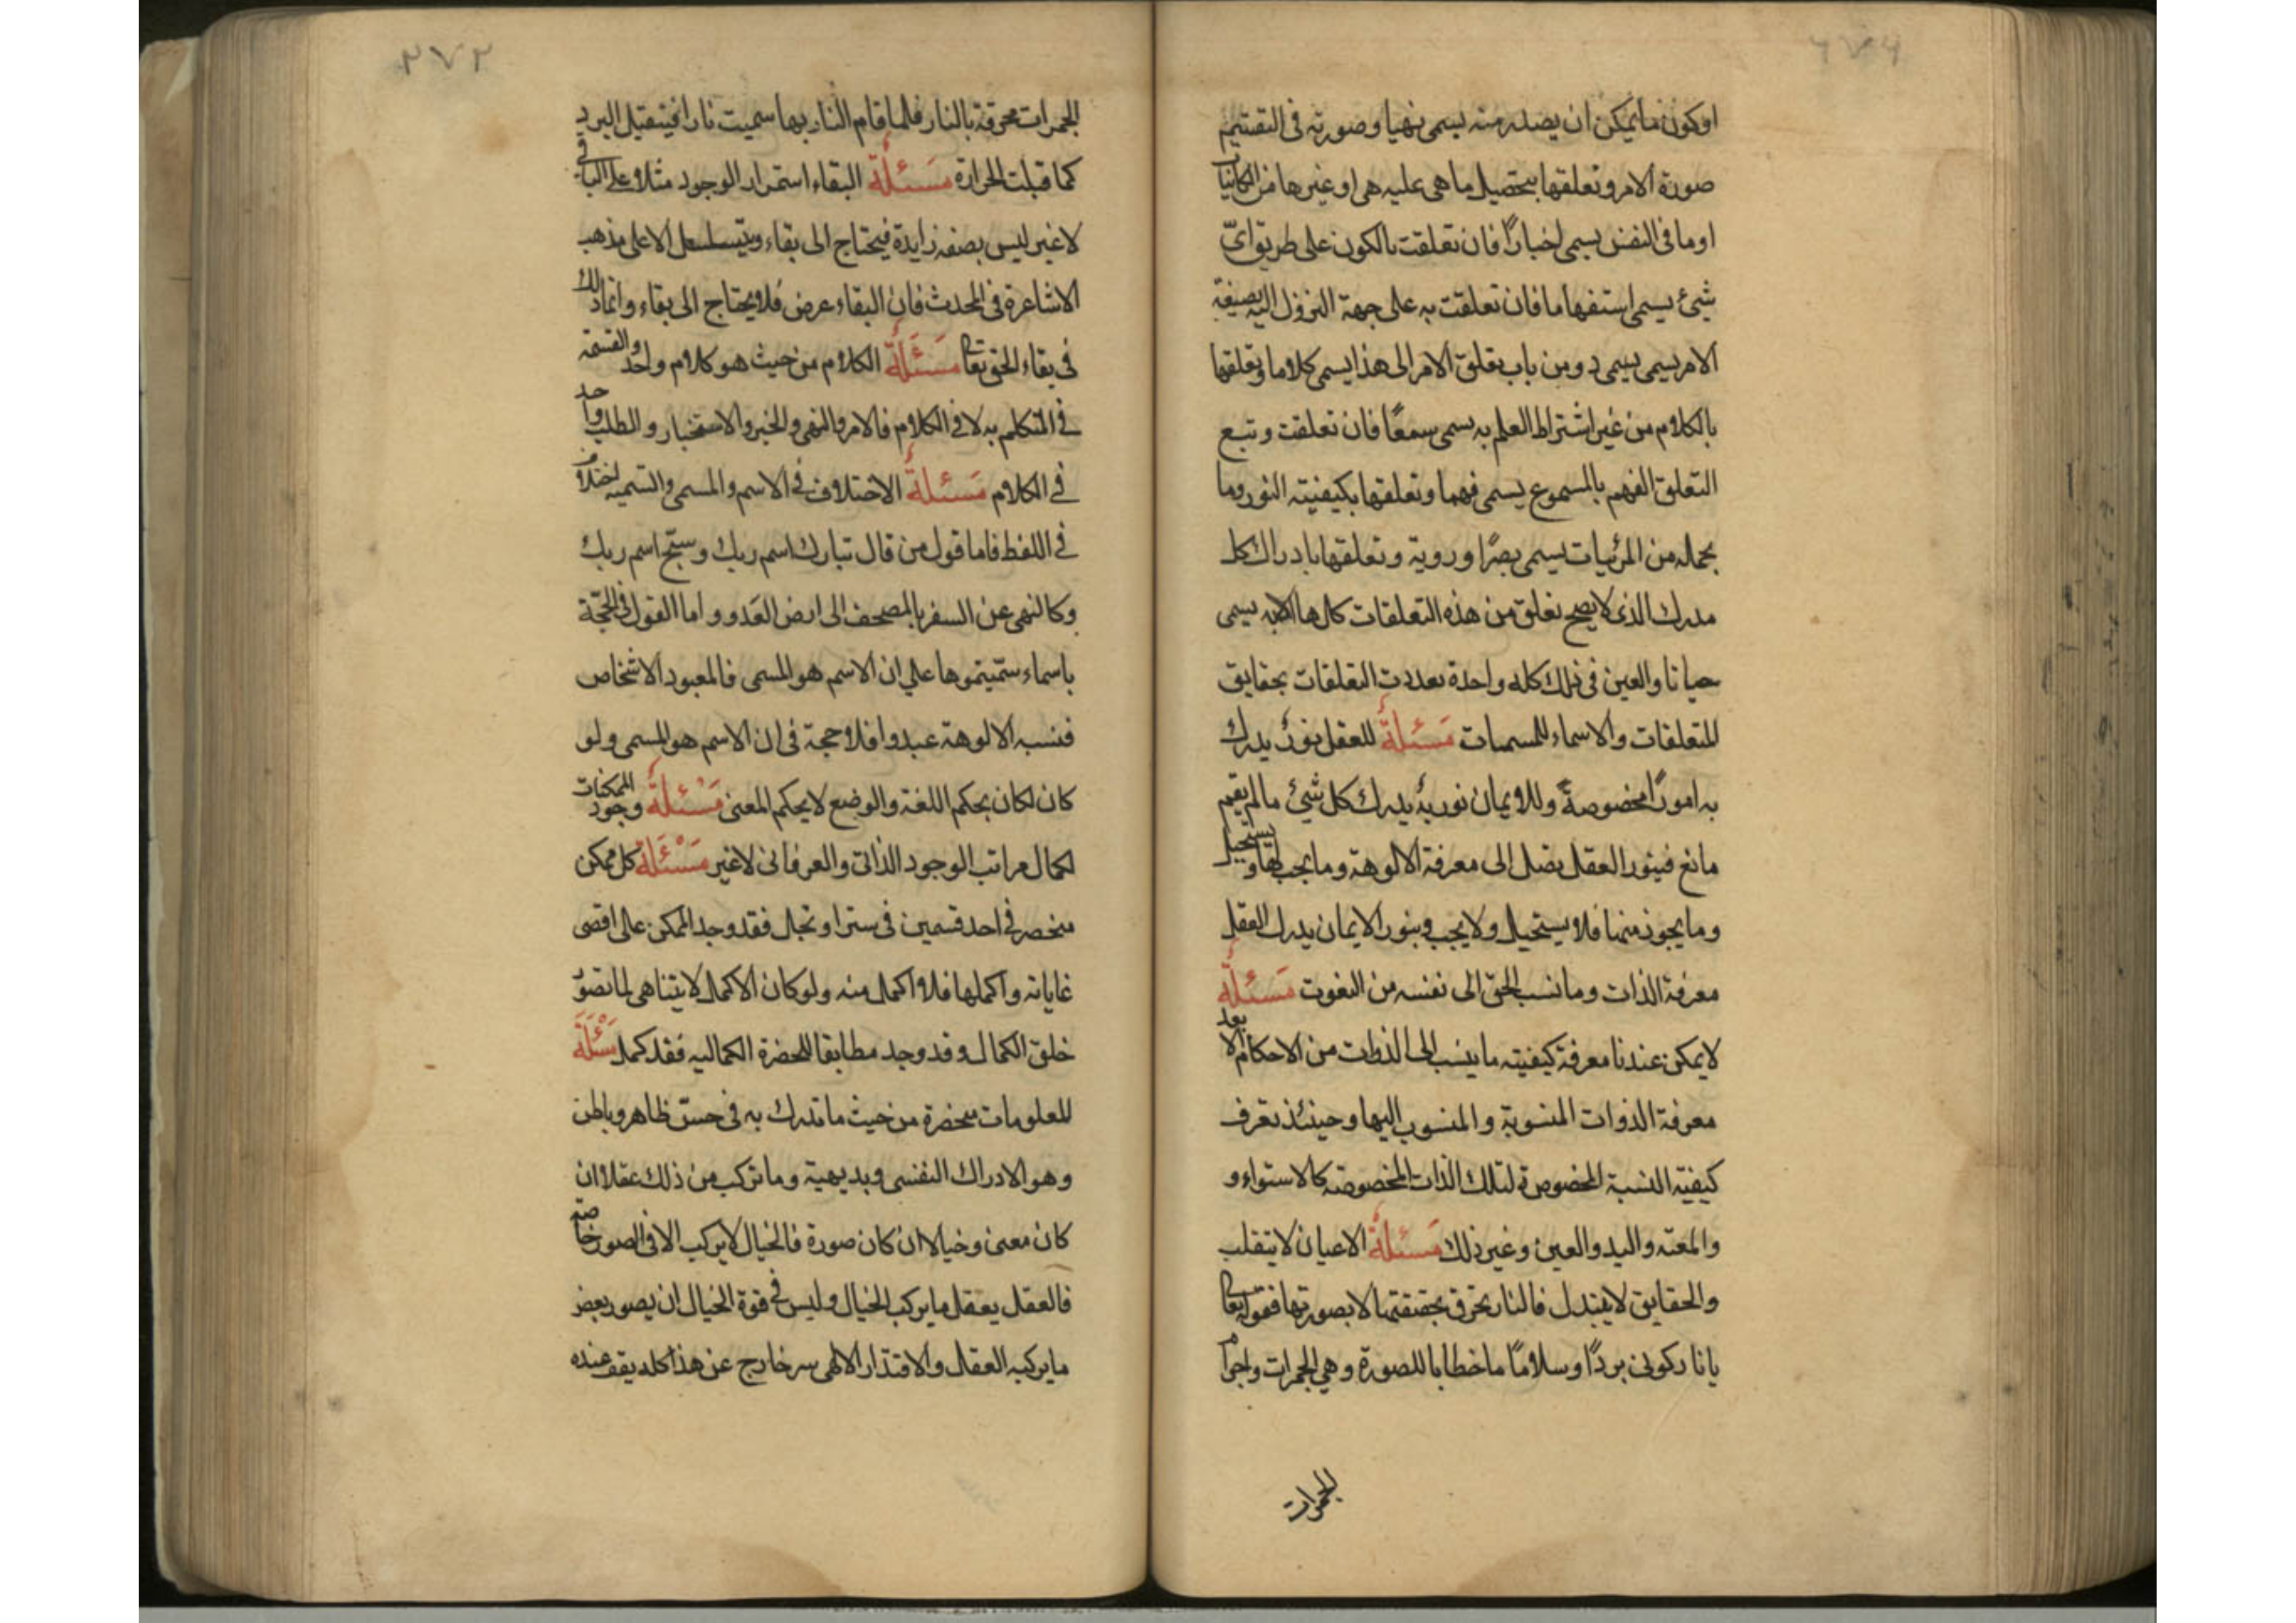 ٦٧٢
اوكون ما يمكن ان يصدر منه يسمى نهيا وصورته فى التقسيم
صورة الامر وتعلقها بتحصيل ما هى عليه هى او غيرها من الكائنات
او ما فى النفس يسمى اخبارًا فان تعلقت بالكون على طريق اىّ
شئ يسمى استفهاما فان تعلقت به على جهة النزول اليه بصيغة
الامر يسمى يسمى د ومن باب تعلق الامر الى هذا يسمى كلاما وتعلقها
بالكلام من غير اشتراط العلم به يسمى سمعًا فان تعلقت وتبع
التعلق الفهم بالمسموع يسمى فهما وتعلقها بكيفيته النور وما
يحمله من المرئيات يسمى بصرًا وروية وتعلقها بادراك كل
مدرك الذى لا يصح تعلق من هذه التعلقات كلها الابه يسمى
حياتا والعين فى ذلك كله واحدة تعددت التعلقات بحقايق
المتعلقات والاسماء للمسميات مَسئلةٌ للعقل نورٌ يدرك
به امورًا مخصوصةً وللايمان نور به يدرك كل شئ ما لم يقم
مانع فبنور العقل تصل الى معرفة الالوهة وما يجب لها ويستحيل
وما يجوز منها فلا يستحيل ولا يجب وبنور الايمان يدرك العقل
معرفة الذات وما نسب الحق الى نفسه من النعوت مَسئلةٌ
لا يمكن عندنا معرفة كيفيته ما ينسب الى الذوات من الاحكام الا بعد
معرفة الذوات المنسوبة والمنسوب اليها وحينئذ تعرف
كيفية النسبة المخصوصة لتلك الذات المخصوصة كالاستواء و
والمعته واليد والعين وغير ذلك مَسئلةٌ الاعيان لا يتقلب
والحقايق لا يتبدل فالنار يحرق بحقيقتها لا بصورتها فقوله تعا
يا نار كونى بردًا وسلامًا ما خطابا للصورة وهى الجمرات واجرام
الجمرات
٢٧٢
الجمرات محرقة بالنار فلما قام النار بها سميت نارا فيتقبل البرد
كما قبلت الحرارة مَسئلةٌ البقاء استمرار الوجود مثلا على الباقى
لا غير ليس بصفه زايدة فيحتاج الى بقاء ويتسلسل الا على مذهب
الاشاعرة فى المحدث فان البقاء عرض فلا يحتاج الى بقاء وانما ذلك
فى بقاء الحق تعا مَسَئَلةٌ الكلام من حيث هو كلام واحد والقسمة
فى المتكلم به لا فى الكلام فالامر والنهى والخبر والاستخبار والطلب واحد
فى الكلام مَسئلةٌ الاختلاف فى الاسم والمسمى والتسميه اختلاف
فى اللفظ فاما قول من قال تبارك اسم ربك وسبّح اسم ربك
وكالنهى عن السفر بالمصحف الى ارض العَدو و اما القول فى الحجّة
باسماء سمّيتموها على ان الاسم هو المسمى فالمعبود الاشخاص
فنسبه الالوهة عبدوا فلا حجة فى ان الاسم هو المسمى ولو
كان لكان بحكم اللغة والوضع لا بحكم المعنى مَسْئلةٌ وجود الممكنات
لكمال مراتب الوجود الذاتى والعرفانى لا غير مَسْئَلةٌ كل ممكن
منحصر فى احد قسمين فى ستر او تجل فقد وجد الممكن على اقصى
غاياته واكملها فلا اكمل منه ولو كان الاكمل لا يتناهى لما تصوّر
خلق الكمال وقد وجد مطابقا للحضرة الكماليه فقد كمل مَسْئَلَةٌ
للعلومات منحصرة من حيث ما تدرك به فى حسّ ظاهر وباطن
وهو الادراك النفسى وبديهية وما تركب من ذلك عقلا ان
كان معنى وخيالا ان كان صورة فالخيال لا يركب الا فى الصور خاصة
فالعقل يعقل ما يركب الخيال وليس فى قوة الخيال ان يصور بعض
ما يركبه العقل والاقتدار الالهى سر خارج عن هذا كله يقف عنده